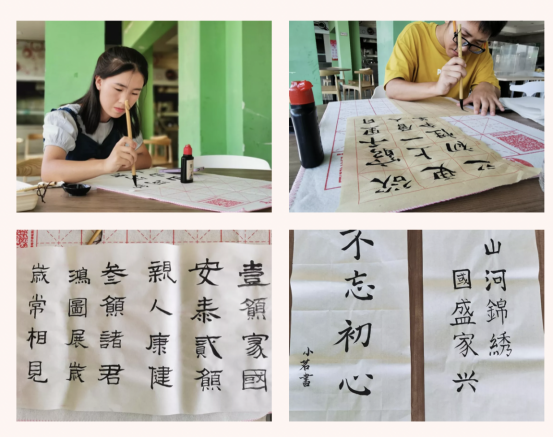 壹願家國
安泰貳願
親人康健
叁願諸君
鴻圖展歲
歲常相見
山河錦綉
國盛家兴
不忘初心
小茗書